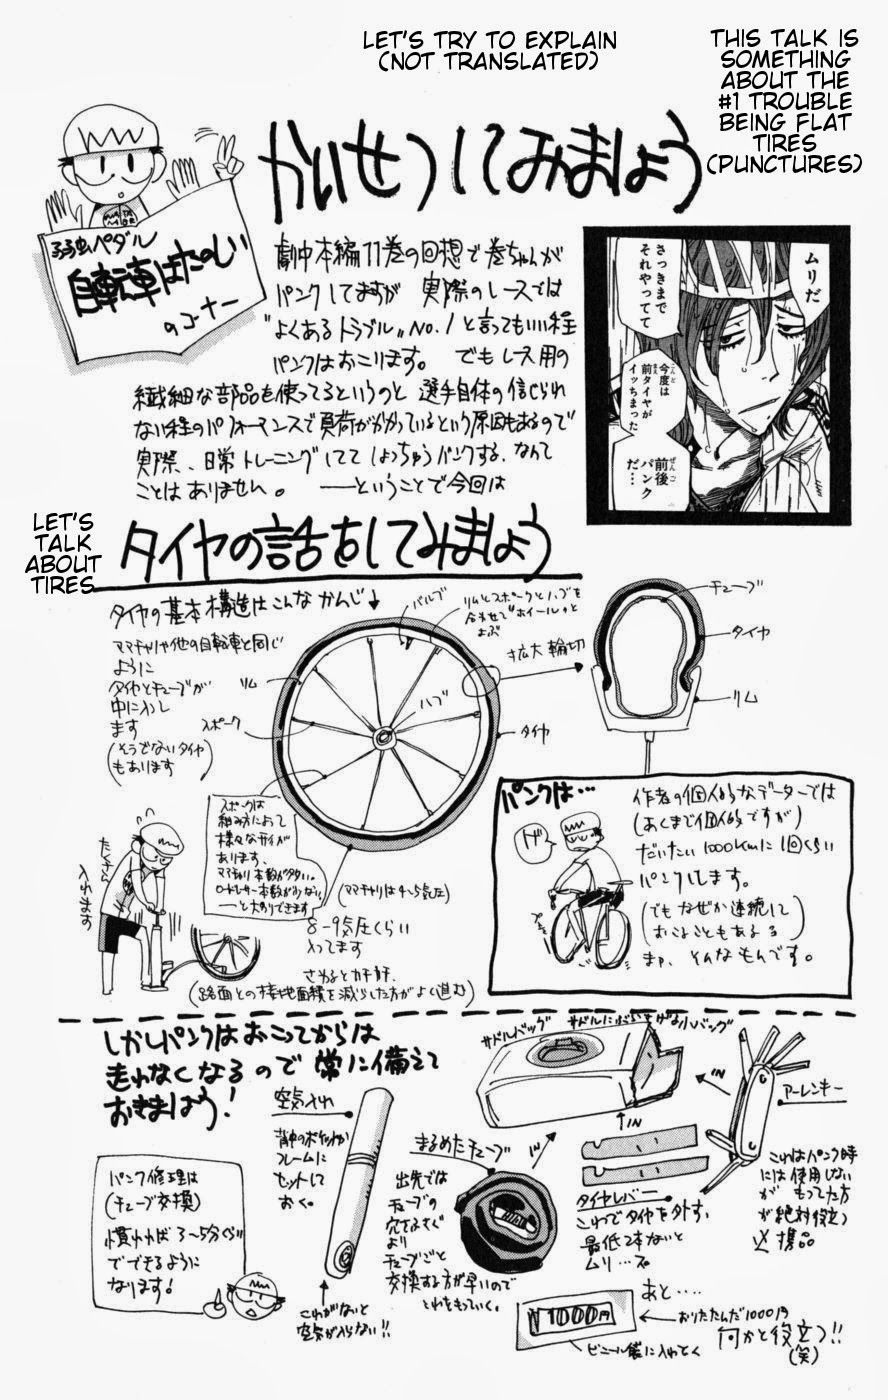 LET'S TRY TO EXPLAIN
(NOT TRANSLATED)
THIS TALK IS
SOMETHING
ABOUT THE
#1 TROUBLE
BEING FLAT
TIRES
(PUNCTURES)
かいせつしてみましょう
弱虫ペダル
自転車はたのしい
のコーナー
劇中本編11巻の回想で巻ちゃんが
パンクしてますが 実際のレースでは
"よくあるトラブル" NO.1と言ってもいい程
パンクはおこります。 でもレース用の
繊細な部品を使ってるというのと 選手自体の信じられ
ない程のパフォーマンスで負荷がかかっているという原因もあるので
実際、日常トレーニングしてて しょっちゅうパンクする、なんて
ことはありません。 ――ということで今回は
ムリだ
さっきまで
それやってて
今度は
前タイヤが
イッちまった
前後
パンク
だ…
LET'S
TALK
ABOUT
TIRES
タイヤの話をしてみましょう
タイヤの基本構造はこんなかんじ↓
ママチャリや他の自転車と同じ
ように
タイヤとチューブが
中に入っし
ます
(そうでないタイヤ
もあります)
バルブ
リムとスポークとハブを
合わせて"ホイール"と
よぶ
リム
スポーク
ハブ
タイヤ
拡大 輪切
チューブ
タイヤ
リム
スポークは
組み方によって
様々なサイが
あります、
ママチャリ本数が多い。
ロードレーサー本数が少ない
――と大かりできます
たくさん
入れます
(ママチャリは4〜5気圧)
8-9気圧くらい
入ってます
さわるとカチカチ、
(路面との接地面積を減らした方がよく進む)
パンクは…
ゲ
プシュ
作者の個人的なデーターでは
(あくまで個人的ですが)
だいたい1000kmに1回くらい
パンクします。
(でもなぜか連続して
おこることもある)
まァ、そんなもんです。
しかしパンクはおこってからは
走れなくなるので 常に備えて
おきましょう!
空気入れ
背中のポケットか
フレームに
セットして
おく。
これがないと
空気が入らない!!
まるめたチューブ
出先では
チューブの
穴さがす
より
チューブごと
交換する方が早いので
これをもっていく。
サドルバッグ
サドルにぶらさげる小バッグ
IN
IN
IN
タイヤレバー
これでタイヤを外す。
最低2本ないと
ムリ…
アーレンキー
これはパンク時
には使用しない
が もってた方
が絶対役立つ
携品
パンク修理は
(チューブ交換)
慣れれば 3〜5分くらい
でできるように
なります!
あと…
¥1000円
おりたたんだ1000円
ビニール袋に入れとく
何かと役立つ!!
(笑)